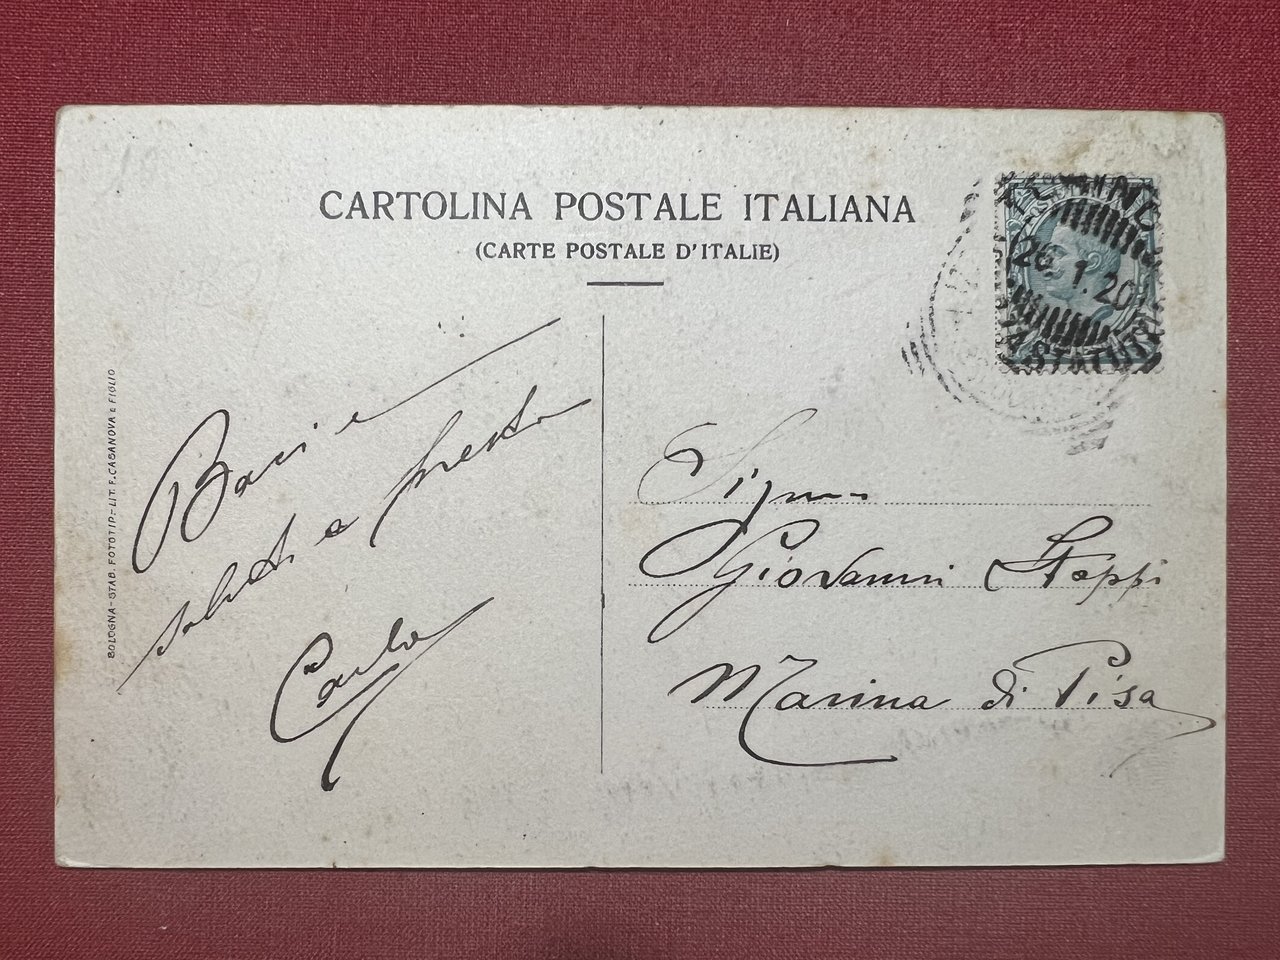 CARTOLINA POSTALE ITALIANA
(CARTE POSTALE D'ITALIE)
26.1.20
BOLOGNA-STAB. FOTOTIP.-LIT. F. CASANOVA & FIGLIO
Baci e
saluti a presto
Carlo
Giovanni Steppi
Marina di Pisa